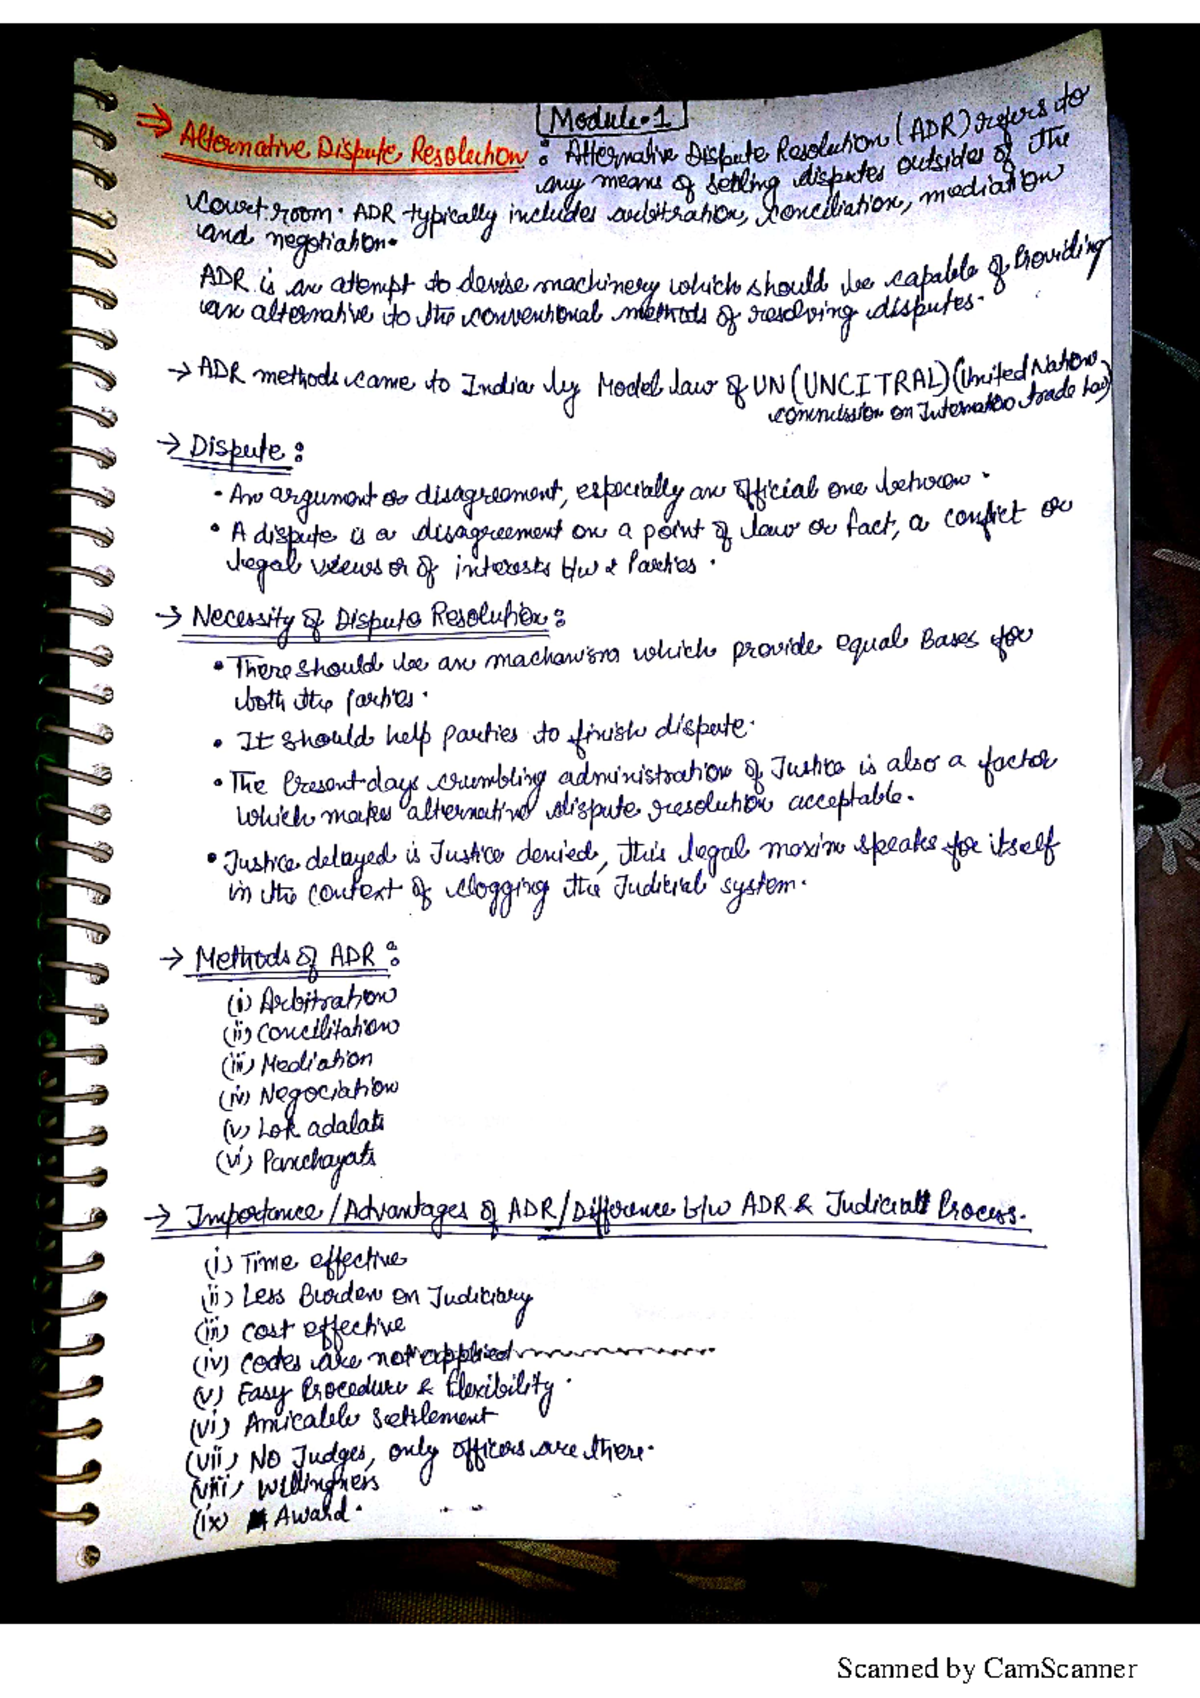 Module-1
⇒ Alternative Dispute Resolution : Alternative Dispute Resolution (ADR) refers to
any means of settling disputes outsides of the
Court room. ADR typically includes arbitration, conciliation, mediation
and negotiation.
ADR is an attempt to devise machinery which should be capable of Providing
an alternative to the conventional methods of resolving disputes.
→ ADR methods came to India by Model law of UN (UNCITRAL) (United Nation
commission on Internation trade law)
→ Dispute :
• An argument or disagreement, especially an official one between.
• A dispute is a disagreement on a point of law or fact, a conflict or
legal views or of interests b/w 2 Parties.
→ Necessity of Dispute Resolution :
• There should be an machanism which provide equal Bases for
both the parties.
• It should help parties to finish dispute.
• The Present days crumbling administration of Justice is also a factor
which makes alternative dispute resolution acceptable.
• Justice delayed is Justice denied, this legal maxim speaks for itself
in the context of clogging the Judicial system.
→ Methods of ADR :
(i) Arbitration
(ii) Concilitation
(iii) Mediation
(iv) Negociation
(v) Lok adalats
(vi) Panchayats
→ Importance / Advantages of ADR / Difference b/w ADR & Judicial Process.
(i) Time effective
(ii) Less Burden on Judiciary
(iii) Cost effective
(iv) Codes are not applied
(v) Easy Procedure & flexibility.
(vi) Amicable Settlement
(vii) No Judges, only officers are there.
(viii) Willingness
(ix) Award.
Scanned by CamScanner